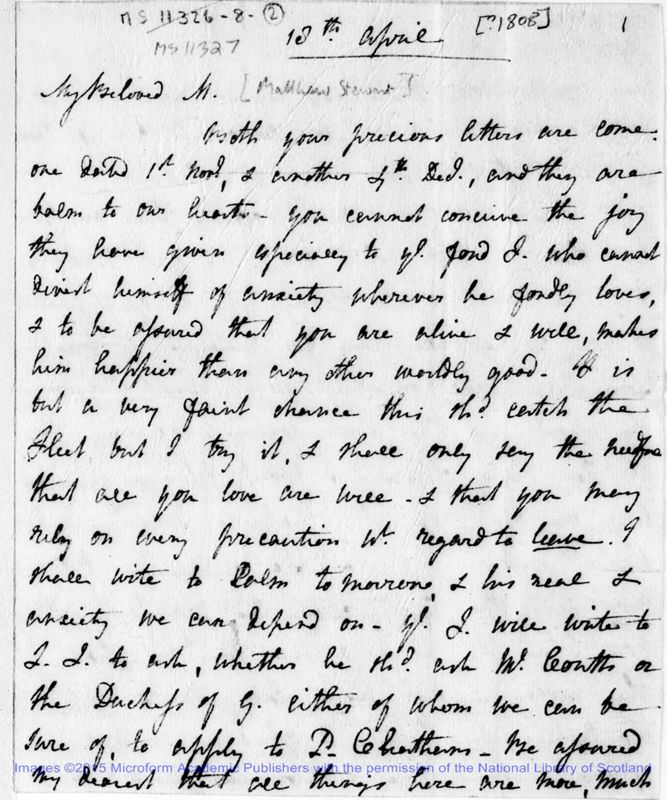 MS 11326-8- ②
MS 11327
18th April [?1808] 1
My Beloved M. [Matthew Stewart]
Both your precious letters are come
one dated 1st Novr, & another 4th Decr., and they are
balm to our hearts - you cannot conceive the joy
they have given especially to yr. fond F. who cannot
divest himself of anxiety wherever he fondly loves,
& to be assured that you are alive & well, makes
him happier than any other worldly good - It is
but a very faint chance this shd. catch the
Fleet but I try it, & shall only say the
that all you love are well - & that you may
rely on every precaution wt. regard to leave. I
shall write to Palm tomorrow, & his zeal &
anxiety we can depend on - yr. F. will write to
to ask, whether he shd. ask Mr. Coutts or
the Duchess of G. either of whom we can be
sure of, to apply to Ld. Chatham - Be assured
my dearest that all things here are more, much
Images ©2015 Microform Academic Publishers with the permission of the National Library of Scotland